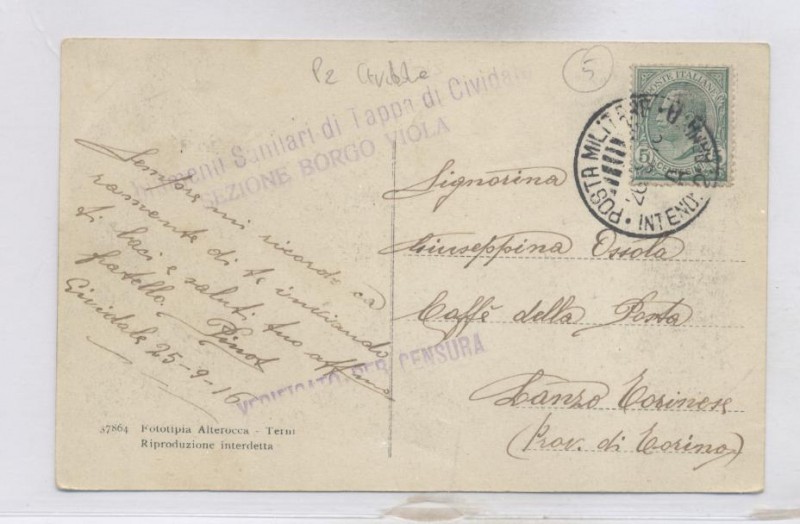 5
POSTE ITALIANE
POSTA MILITARE
INTENDZA
imenti Sanitari di Tappa di Cividale
SEZIONE BORGO VIOLA
Sempre mi ricordo ca
ramente di te inviando
ti baci e saluti tuo affmo
fratello Pinot
Cividale 25-9-16
VERIFICATO PER CENSURA
37864 Fototipia Alterocca - Terni
Riproduzione interdetta
Signorina
Giuseppina Ossola
Caffè della Posta
Lanzo Torinese
(Prov. di Torino)